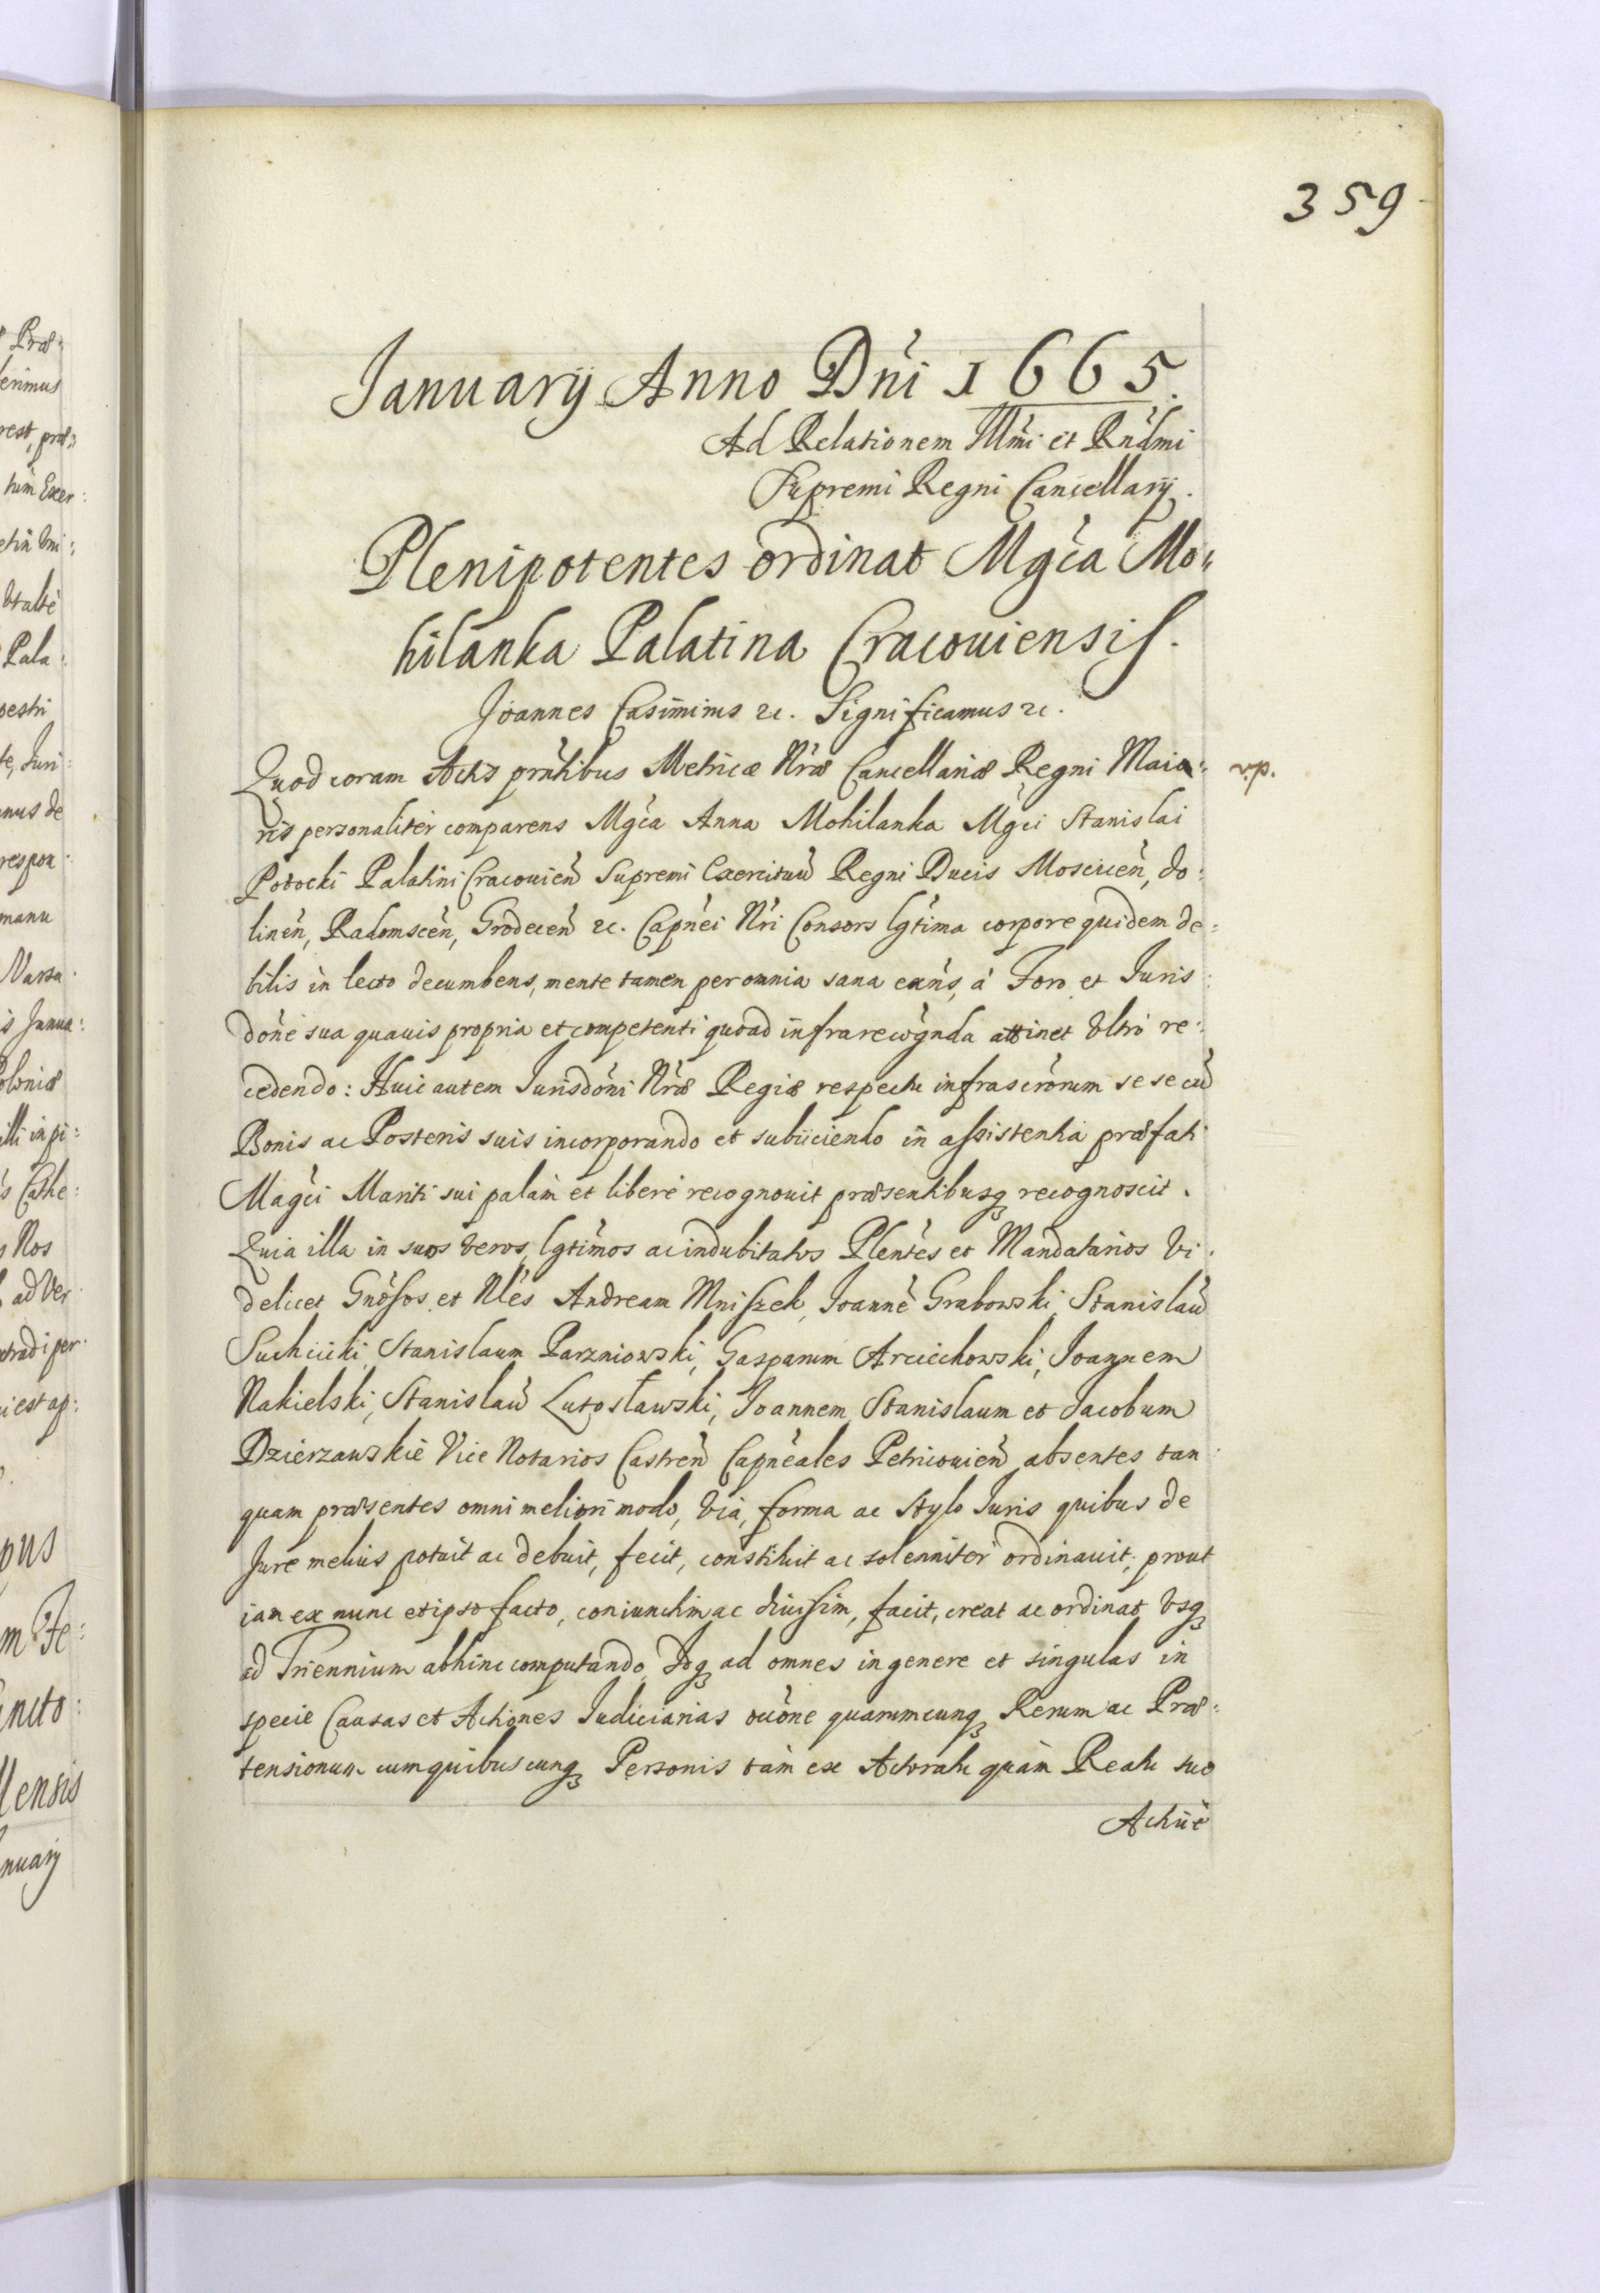 359
Januarij Anno Dńi 1665.
Ad Relationem Illḿi et Rńdmi
Supremi Regni Cancellarij.
Plenipotentes ordinat Mgća Mo„
hilanka Palatina Cracouiensis.
Joannes Casimirus &c. Significamus &c.
Quod coram Actis prńtibus Metricæ Nŕæ Cancellariæ Regni Maio: v.p.
ris personaliter comparens Mgća Anna Mohilanka Mgći Stanislai
Potocki Palatini Cracouień Supremi Exercituũ Regni Ducis Mosciceń, do:
lineń, Radomsceń, Grodeceń &c. Capńei Nŕi Consors lgťima corpore quidem de:
bilis in lecto decumbens, mente tamen per omnia sana exńs, á Foro et Juris:
dońe sua quauis propria et competenti quoad infrarecogńda attinet Vltro re:
cedendo: Huic autem Jurisdońi Nŕæ Regiæ respectu infrascŕorum se se cũ
Bonis ac Posteris suis incorporando et subiiciendo in assistentia præfati
Magći Mariti sui palàm et liberè recognouit præsentibusq recognoscit.
Quia illa in suos veros, lgťimos ac indubitatos Pleńtes et Mandatarios Vi:
delicet Gńosos et Nłes Andream Mniszek, Joannẽ Grabowski, Stanislaũ
Suchcicki, Stanislaum Parzniowski, Gasparum Arciechowski, Joannem
Nakielski, Stanislaũ Lutosławski, Joannem Stanislaum et Jacobum
Dzierzawskie Vice Notarios Castreń Capńeales Petricouień absentes tan:
quam præsentes omni meliori modo, via, forma ac Stylo Juris quibus de
Jure melius potuit ac debuit, fecit, constituit ac solenniter ordinauit, prout
iam ex nunc et ipso facto, coniunctim ac diuisim, facit, creat ac ordinat, Vsq
ad Triennium abhinc computando, Idq ad omnes in genere et singulas in
specie Causas et Actiones Judiciarias ocćone quarumcunq Rerum ac Præ:
tensionum cum quibuscunq Personis tàm ex Actoratu quàm Reatu suo
Actiuè